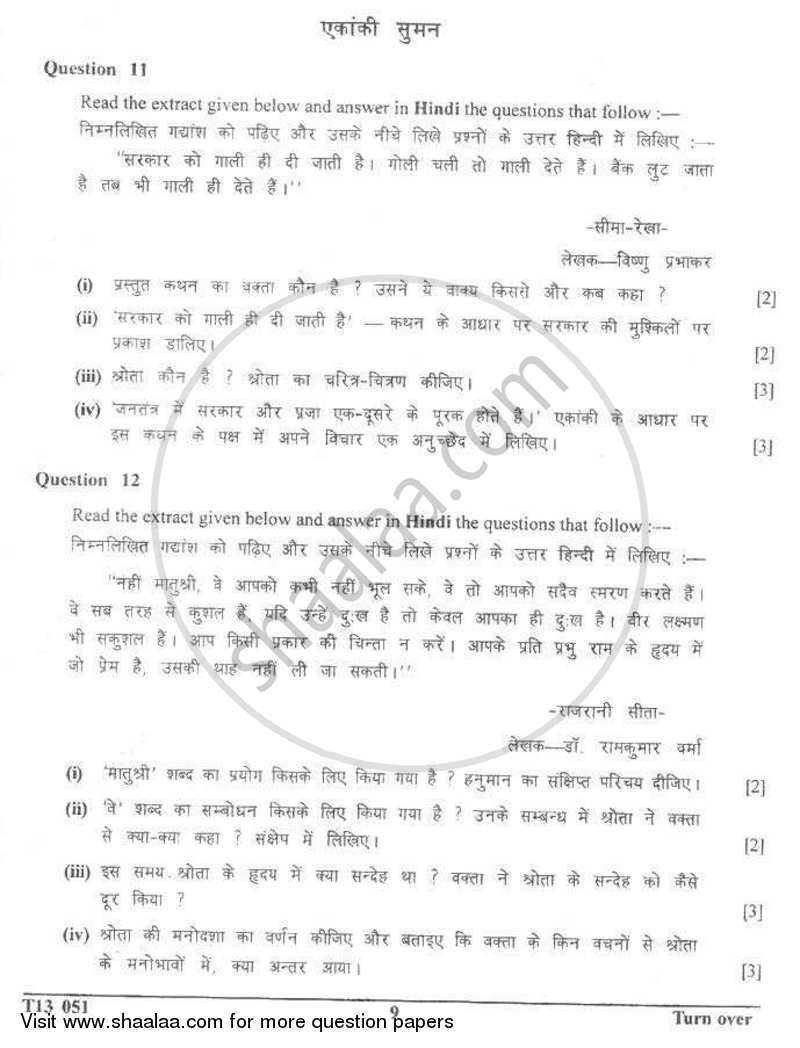 एकांकी सुमन
Question 11
Read the extract given below and answer in Hindi the questions that follow :—
निम्नलिखित गद्यांश को पढ़िए और उसके नीचे लिखे प्रश्नों के उत्तर हिन्दी में लिखिए :—
"सरकार को गाली ही दी जाती है। गोली चली तो गाली देते हैं। बैंक लुट जाता
है तब भी गाली ही देते हैं।''
-सीमा-रेखा-
लेखक—विष्णु प्रभाकर
(i) प्रस्तुत कथन का वक्ता कौन है ? उसने ये वाक्य किससे और कब कहा ? [2]
(ii) 'सरकार को गाली ही दी जाती है' — कथन के आधार पर सरकार की मुश्किलों पर
प्रकाश डालिए। [2]
(iii) श्रोता कौन है ? श्रोता का चरित्र-चित्रण कीजिए। [3]
(iv) 'जनतंत्र में सरकार और प्रजा एक-दूसरे के पूरक होते हैं।' एकांकी के आधार पर
इस कथन के पक्ष में अपने विचार एक अनुच्छेद में लिखिए। [3]
Question 12
Read the extract given below and answer in Hindi the questions that follow :—
निम्नलिखित गद्यांश को पढ़िए और उसके नीचे लिखे प्रश्नों के उत्तर हिन्दी में लिखिए :—
"नहीं मातुश्री, वे आपको कभी नहीं भूल सके, वे तो आपको सदैव स्मरण करते हैं।
वे सब तरह से कुशल हैं, यदि उन्हें दुःख है तो केवल आपका ही दुःख है। वीर लक्ष्मण
भी सकुशल हैं। आप किसी प्रकार की चिन्ता न करें। आपके प्रति प्रभु राम के हृदय में
जो प्रेम है, उसकी थाह नहीं ली जा सकती।''
-राजरानी सीता-
लेखक—डॉ. रामकुमार वर्मा
(i) 'मातुश्री' शब्द का प्रयोग किसके लिए किया गया है ? हनुमान का संक्षिप्त परिचय दीजिए। [2]
(ii) 'वे' शब्द का सम्बोधन किसके लिए किया गया है ? उनके सम्बन्ध में श्रोता ने वक्ता
से क्या-क्या कहा ? संक्षेप में लिखिए। [2]
(iii) इस समय श्रोता के हृदय में क्या सन्देह था ? वक्ता ने श्रोता के सन्देह को कैसे
दूर किया ? [3]
(iv) श्रोता की मनोदशा का वर्णन कीजिए और बताइए कि वक्ता के किन वचनों से श्रोता
के मनोभावों में, क्या अन्तर आया। [3]
T13 051
9
Turn over
Visit www.shaalaa.com for more question papers
shaalaa.com